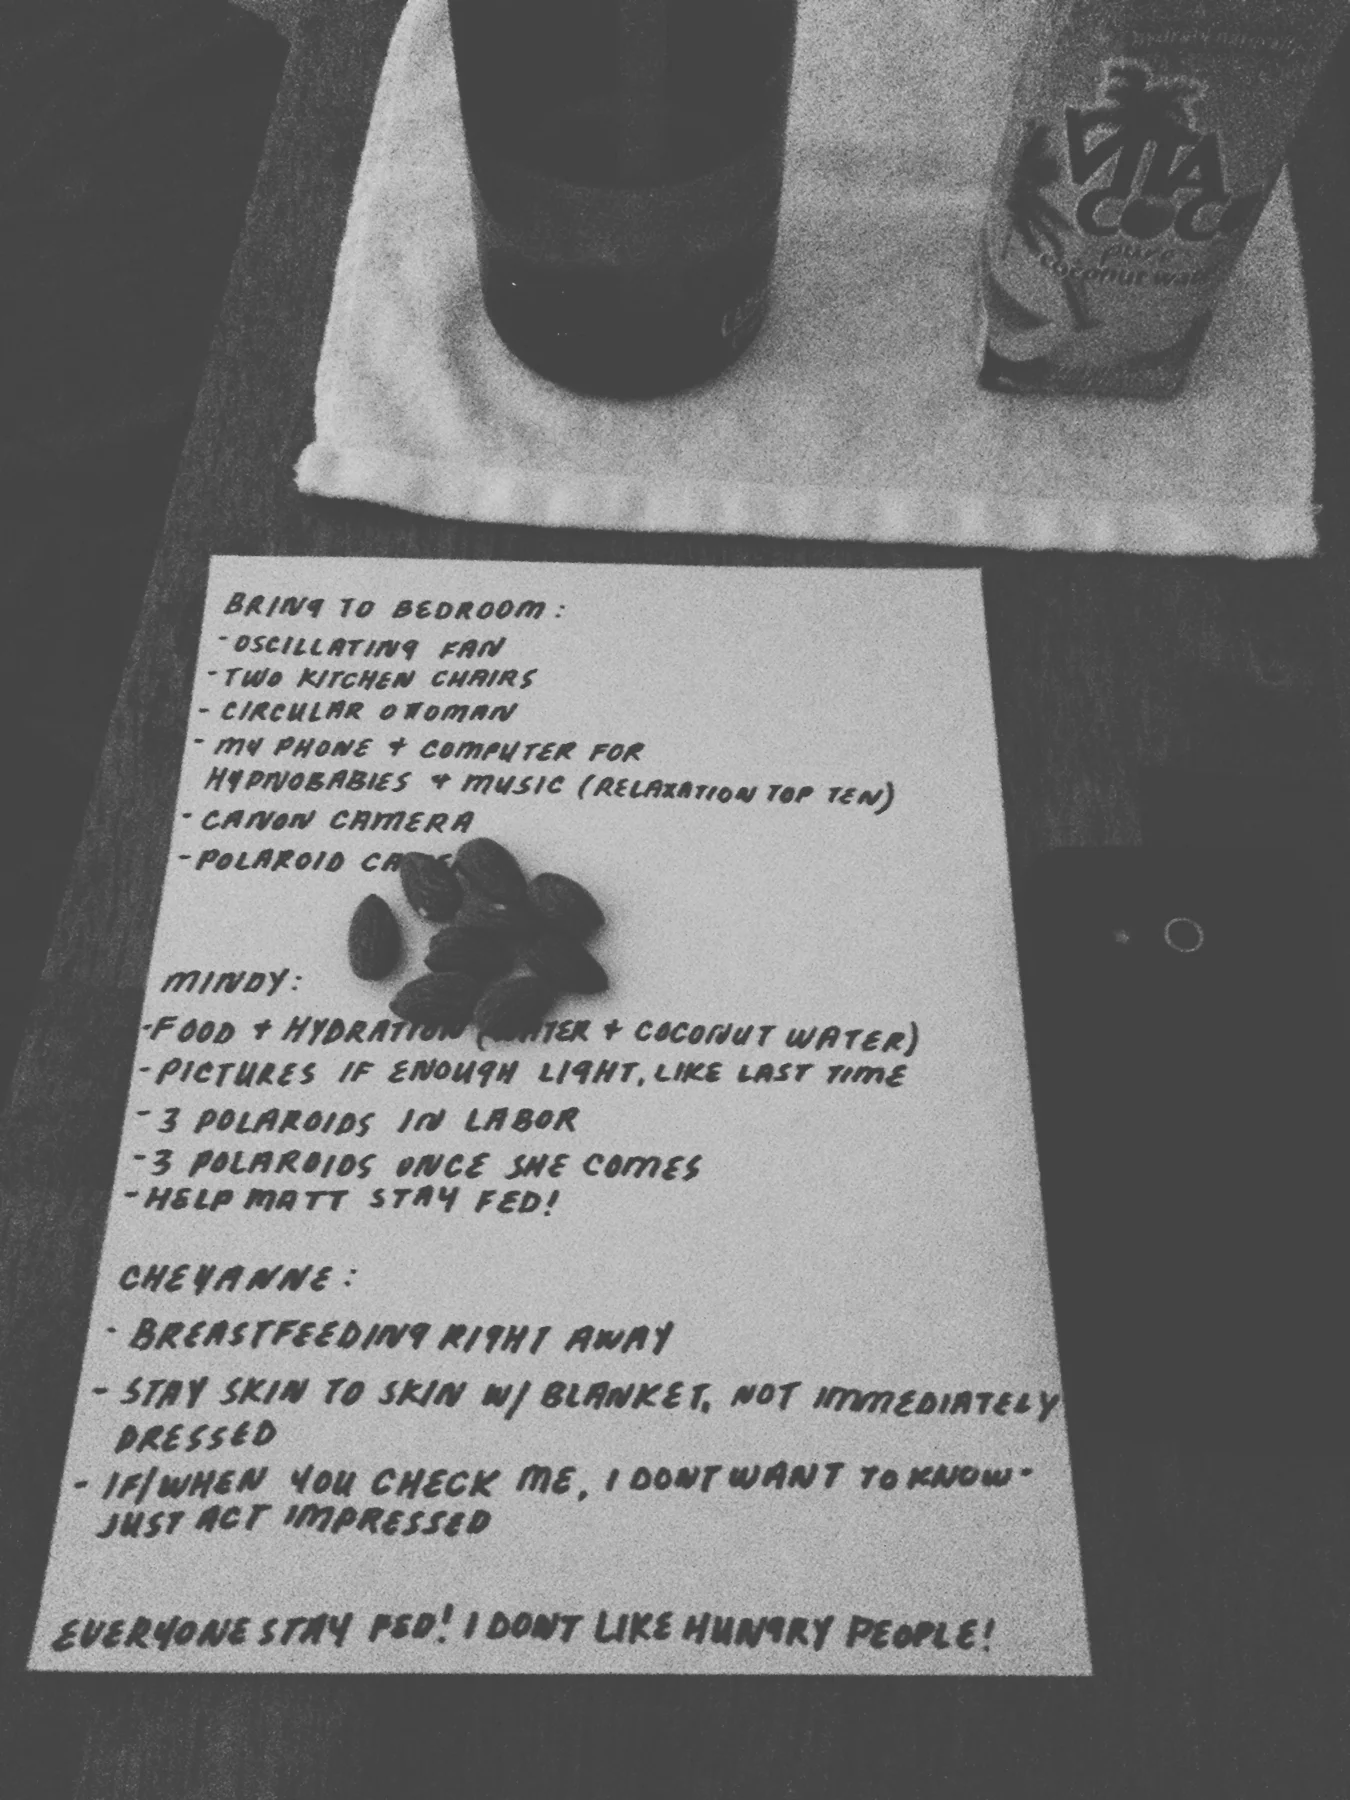 VITA
COCO
pure
coconut water
BRING TO BEDROOM:
- OSCILLATING FAN
- TWO KITCHEN CHAIRS
- CIRCULAR OTTOMAN
- MY PHONE + COMPUTER FOR
HYPNOBABIES + MUSIC (RELAXATION TOP TEN)
- CANON CAMERA
- POLAROID
MINDY:
- FOOD + HYDRATION (WATER + COCONUT WATER)
- PICTURES IF ENOUGH LIGHT, LIKE LAST TIME
- 3 POLAROIDS IN LABOR
- 3 POLAROIDS ONCE SHE COMES
- HELP MATT STAY FED!
CHEYANNE:
- BREASTFEEDING RIGHT AWAY
- STAY SKIN TO SKIN W/ BLANKET, NOT IMMEDIATELY
DRESSED
- IF/WHEN YOU CHECK ME, I DONT WANT TO KNOW -
JUST ACT IMPRESSED
EVERYONE STAY FED! I DONT LIKE HUNGRY PEOPLE!